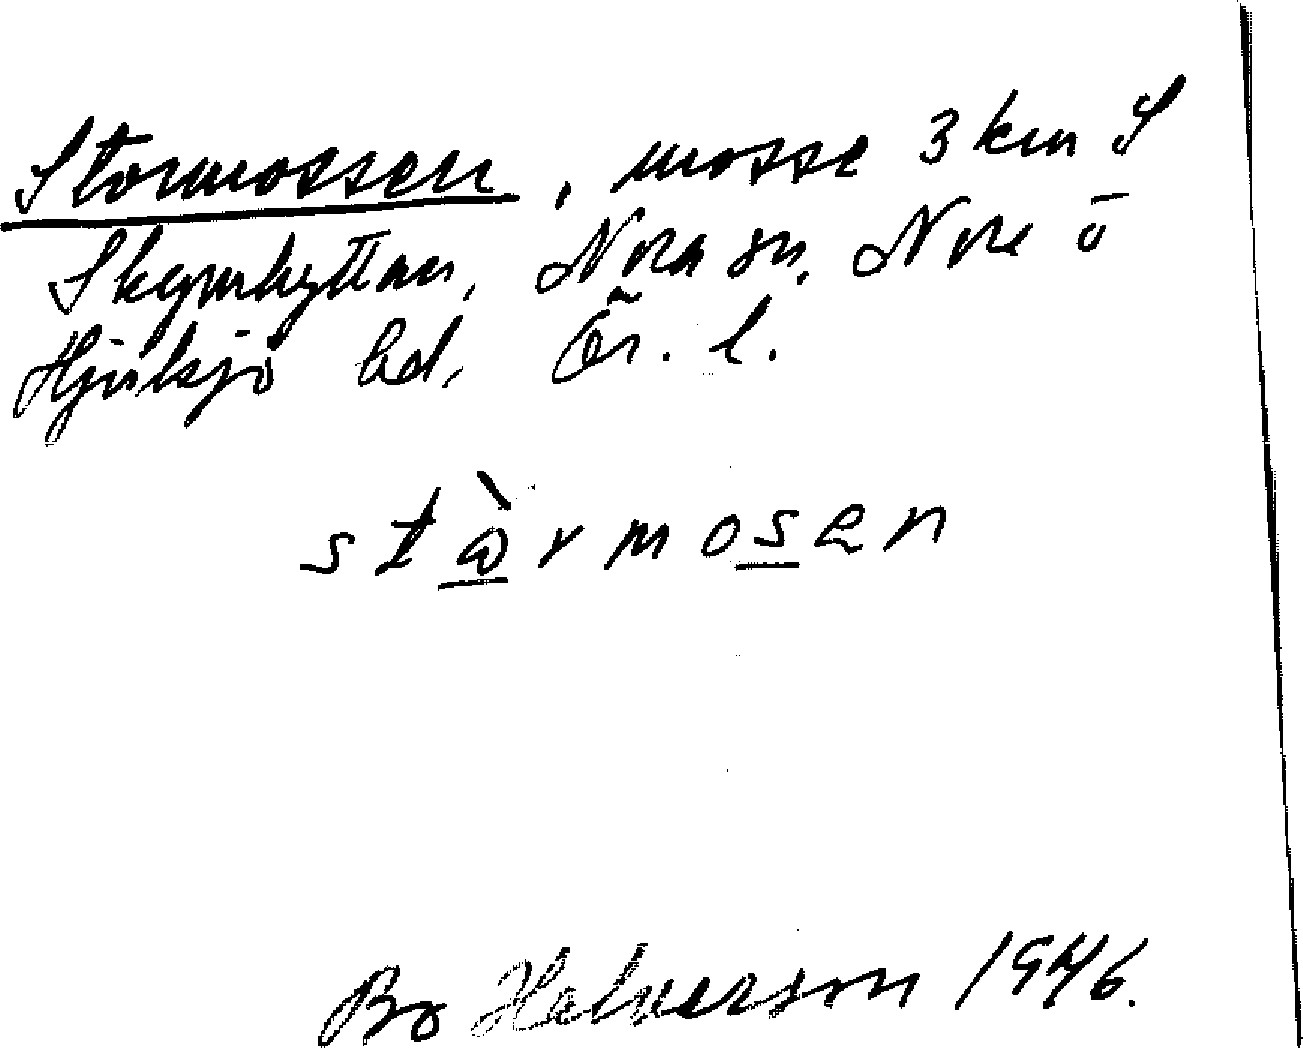 Stormossen, mosse 3 km S
Skyrhyttan, Nora sn, Nora o
Hjulsjö bd, Ör. l.
stὼ̲rmos̲en
Bo Halverson 1946.